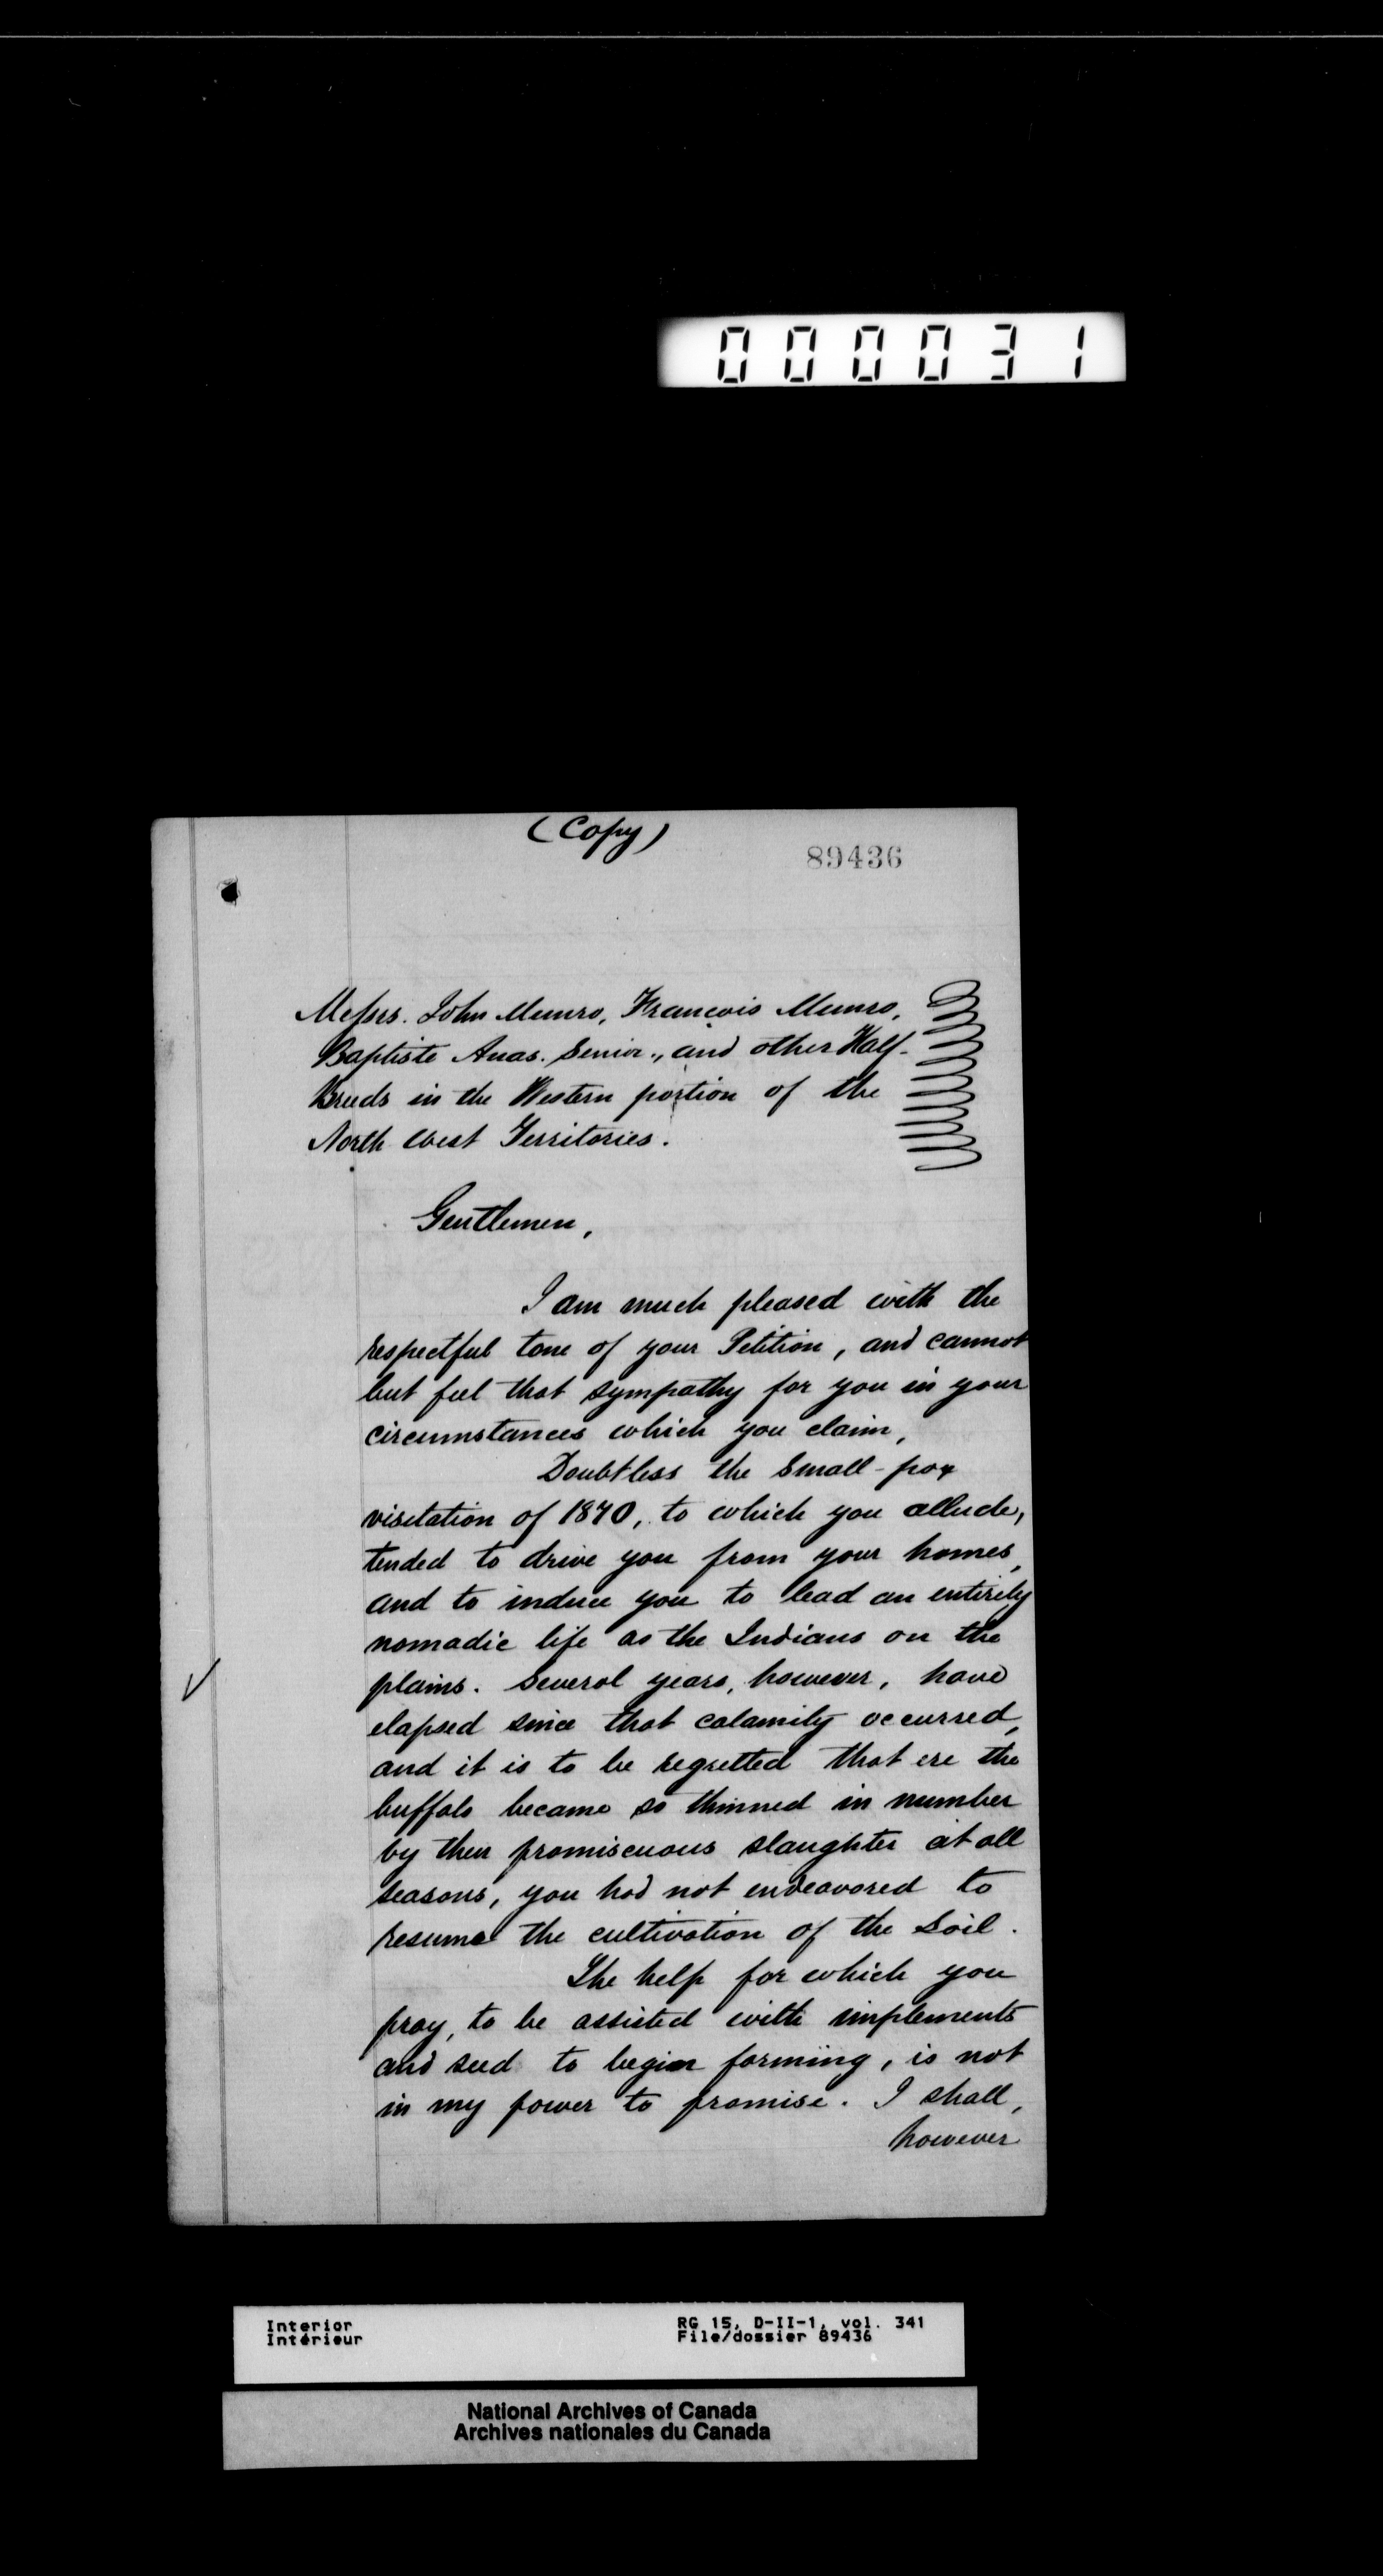 000031
(Copy)
89436
Messrs. John Munro, François Munro,
Baptiste Anas. Senior., and other Half-
Breeds in the Western portion of the
North West Territories.
Gentlemen,
I am much pleased with the
respectful tone of your Petition, and cannot
but feel that sympathy for you in your
circumstances which you claim,
Doubtless the Small-pox
visitation of 1870, to which you allude,
tended to drive you from your homes,
and to induce you to lead an entirely
nomadic life as the Indians on the
plains. Several years, however, have
elapsed since that calamity occurred,
and it is to be regretted that ere the
buffalo became so thinned in number
by their promiscuous slaughter at all
seasons, you had not endeavored to
resume the cultivation of the Soil.
The help for which you
pray, to be assisted with implements
and seed to begin farming, is not
in my power to promise. I shall,
however
Interior
Intérieur
RG 15, D-II-1, vol. 341
File/dossier 89436
National Archives of Canada
Archives nationales du Canada